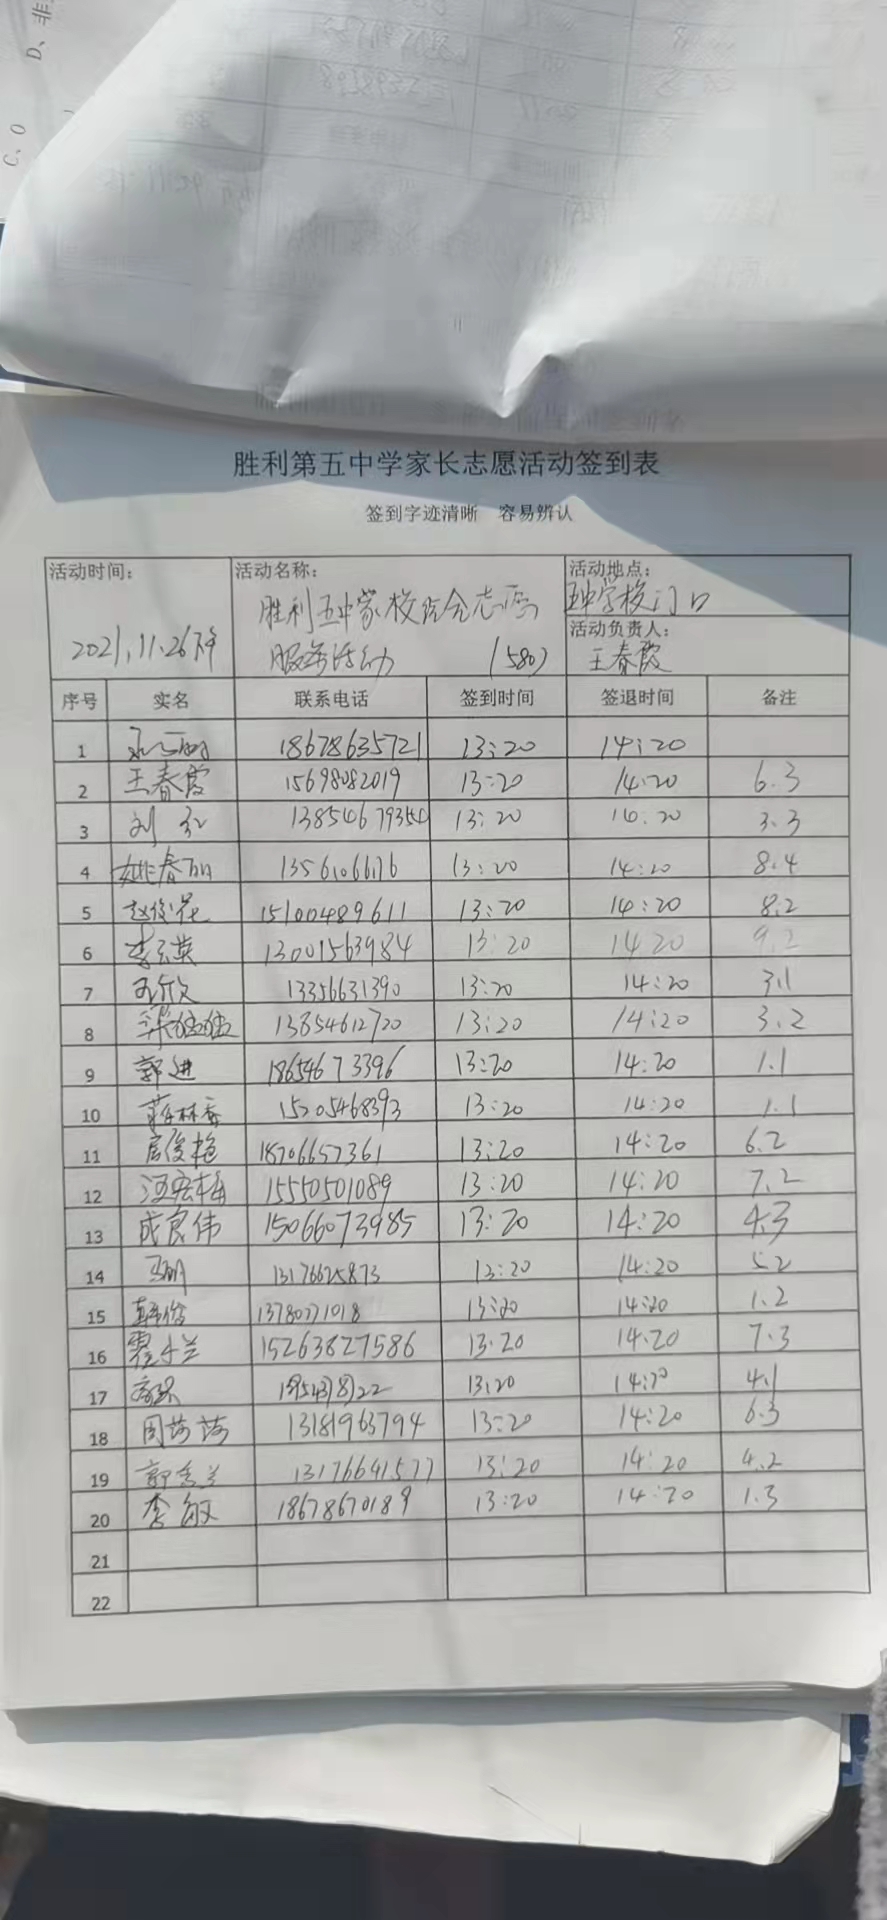 C、0 D、非
胜利第五中学家长志愿活动签到表
签到字迹清晰 容易辨认
活动时间： 活动名称： 活动地点：
胜利五中家校 志愿 五中学校门口
活动负责人：
2021.11.26 服务活动 (580) 王春霞
序号 实名 联系电话 签到时间 签退时间 备注
1 18678635721 13:20 14:20
2 王春霞 15698082019 13:20 14:20 6.3
3 刘 13:20 14:20 3.3
4 姚春丽 13:20 14:20 8.4
5 赵俊花 15100489611 13:20 14:20 8.2
6 李云英 13001563984 13:20 14 20 9.2
7 13356631390 13:20 14:20 3.1
8 梁 13854612720 13:20 14:20 3.2
9 郭进 18654673396 13:20 14:20 1.1
10 蒋林香 15205468393 13:20 14:20 1.1
11 房俊艳 18706657361 13:20 14:20 6.2
12 汪宏梅 15550501089 13:20 14:20 7.2
13 成良伟 15066073985 13:20 14:20 4.3
14 13176625873 13:20 14:20 5.2
15 韩俗 13780771018 13:20 14:20 1.2
16 霍小兰 15263827586 13.20 14.20 7.3
17 13:20 14:20 4.1
18 周莎莎 13181963794 13:20 14:20 6.3
19 郭秀兰 13176641577 13:20 14:20 4.2
20 李敏 18678670189 13:20 14:20 1.3
21
22